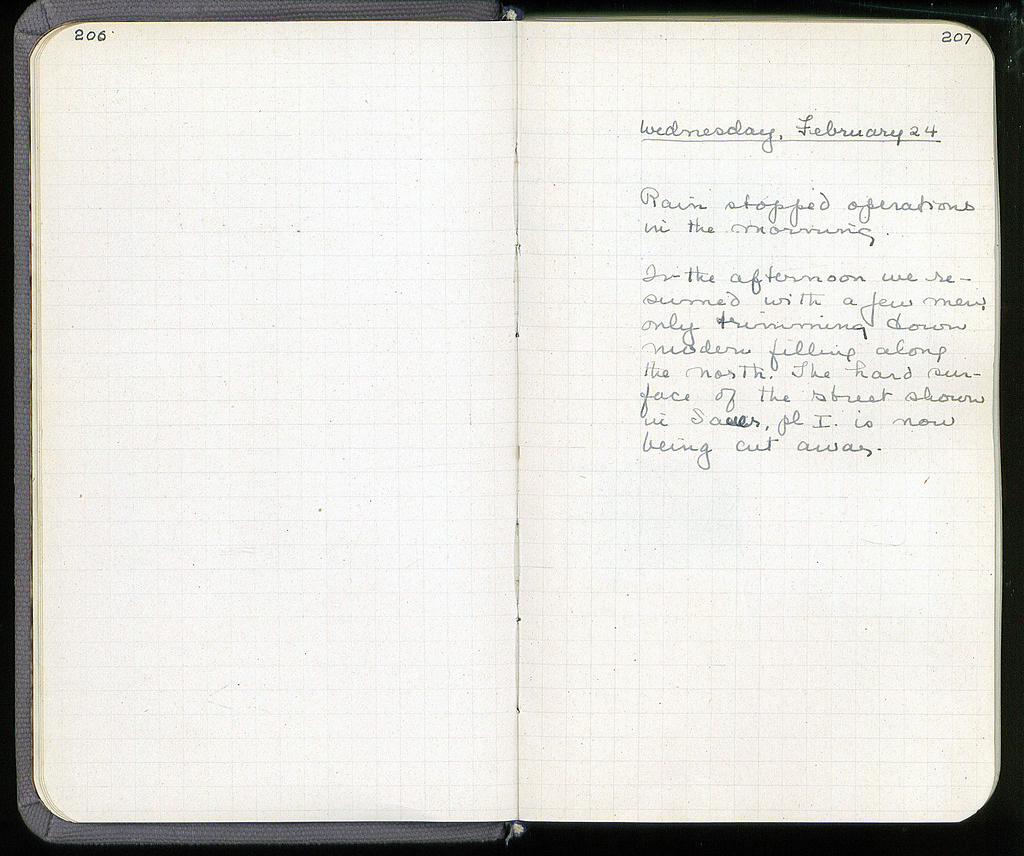 206
207
Wednesday, February 24
Rain stopped operations
in the morning.
In the afternoon we re-
sumed with a few men,
only trimming down
modern filling along
the north. The hard sur-
face of the street shown
in pl I. is now
being cut away.